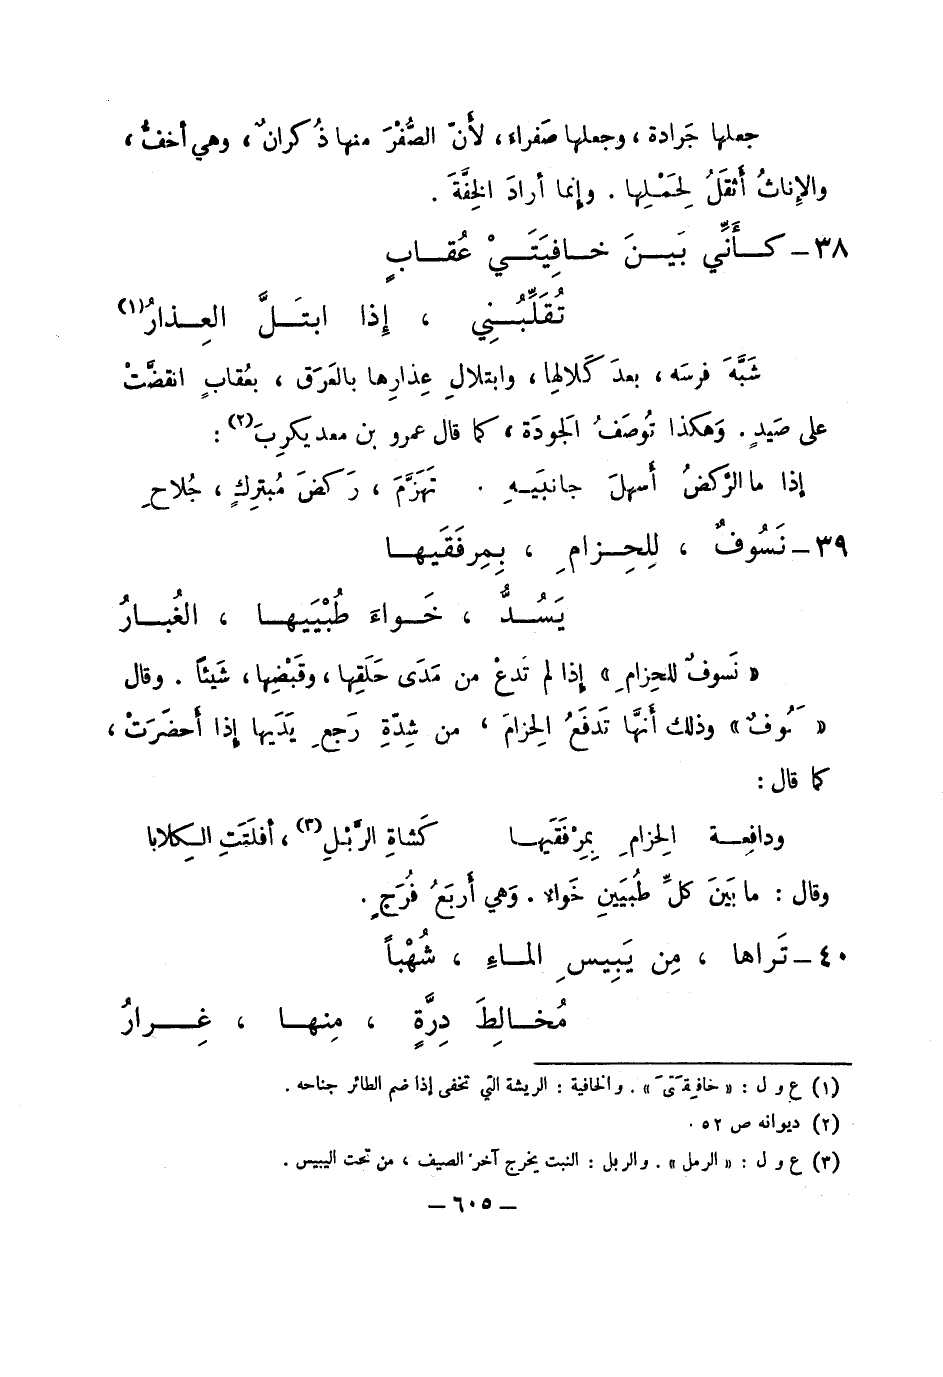 جعلها جَرادة ، وجعلها صَفراء ، لأَنّ الصُّفْرَ منها ذُكرانٌ ، وهي أخفُّ ،
والإناثُ أثقَلُ لِحَمْلِها . وإنما أرادَ الخِفَّةَ .
٣٨ – كَأَنِّي بَينَ خافِيَتَيْ عُقابٍ
تُقَلِّبُنِي ، إذا ابتَلَّ العِذارُ(١)
شَبَّهَ فرسَه ، بعدَ كَلالِها ، وابتلالِ عِذارِها بالعَرَق ، بعُقابٍ انقضَّتْ
على صَيدٍ . وَهكذا تُوصَفُ الجودَة ، كما قال عمرو بن معديكربَ(٢) :
إذا ما الرَّكضُ أسهلَ جانبَيهِ . تَهَزَّمَ ، رَكضَ مُبتركٍ ، جُلاحِ
٣٩ – نَسُوفٌ ، لِلحِزامِ ، بِمِرفَقَيها
يَسُدُّ ، خَواءَ طُبْيَيها ، الغُبارُ
« نَسوفٌ للحِزامِ » إذا لم تَدعْ من مَدَى حَلَقِها ، وقَبْضِها ، شَيئاً . وقال
« ـَـُوفٌ » وذلك أنَّها تَدفَعُ الحِزامَ ، من شِدّةِ رَجعِ يَدَيها إذا أحضَرَتْ ،
كما قال :
ودافِعةِ الحِزامِ بِمِرْفَقَيها كَشاةِ الرَّبْلِ(٣) ، أفلَتَتِ الكِلابا
وقال : ما بَينَ كلِّ طُبيَينِ خَواء . وَهي أربَعُ فُرَجٍ .
٤٠ – تَراها ، مِن يَبِيسِ الماءِ ، شُهْباً
مُخالِطَ دِرَّةٍ ، مِنها ، غِرارُ
(١) ع و ل : « خافِقَتَيْ » . والخافية : الريشة التي تخفى إذا ضم الطائر جناحه .
(٢) ديوانه ص ٥٢ .
(٣) ع و ل : « الرمل » . والربل : النبت يخرج آخرَ الصيف ، من تحت اليبيس .
– ٦٠٥ –